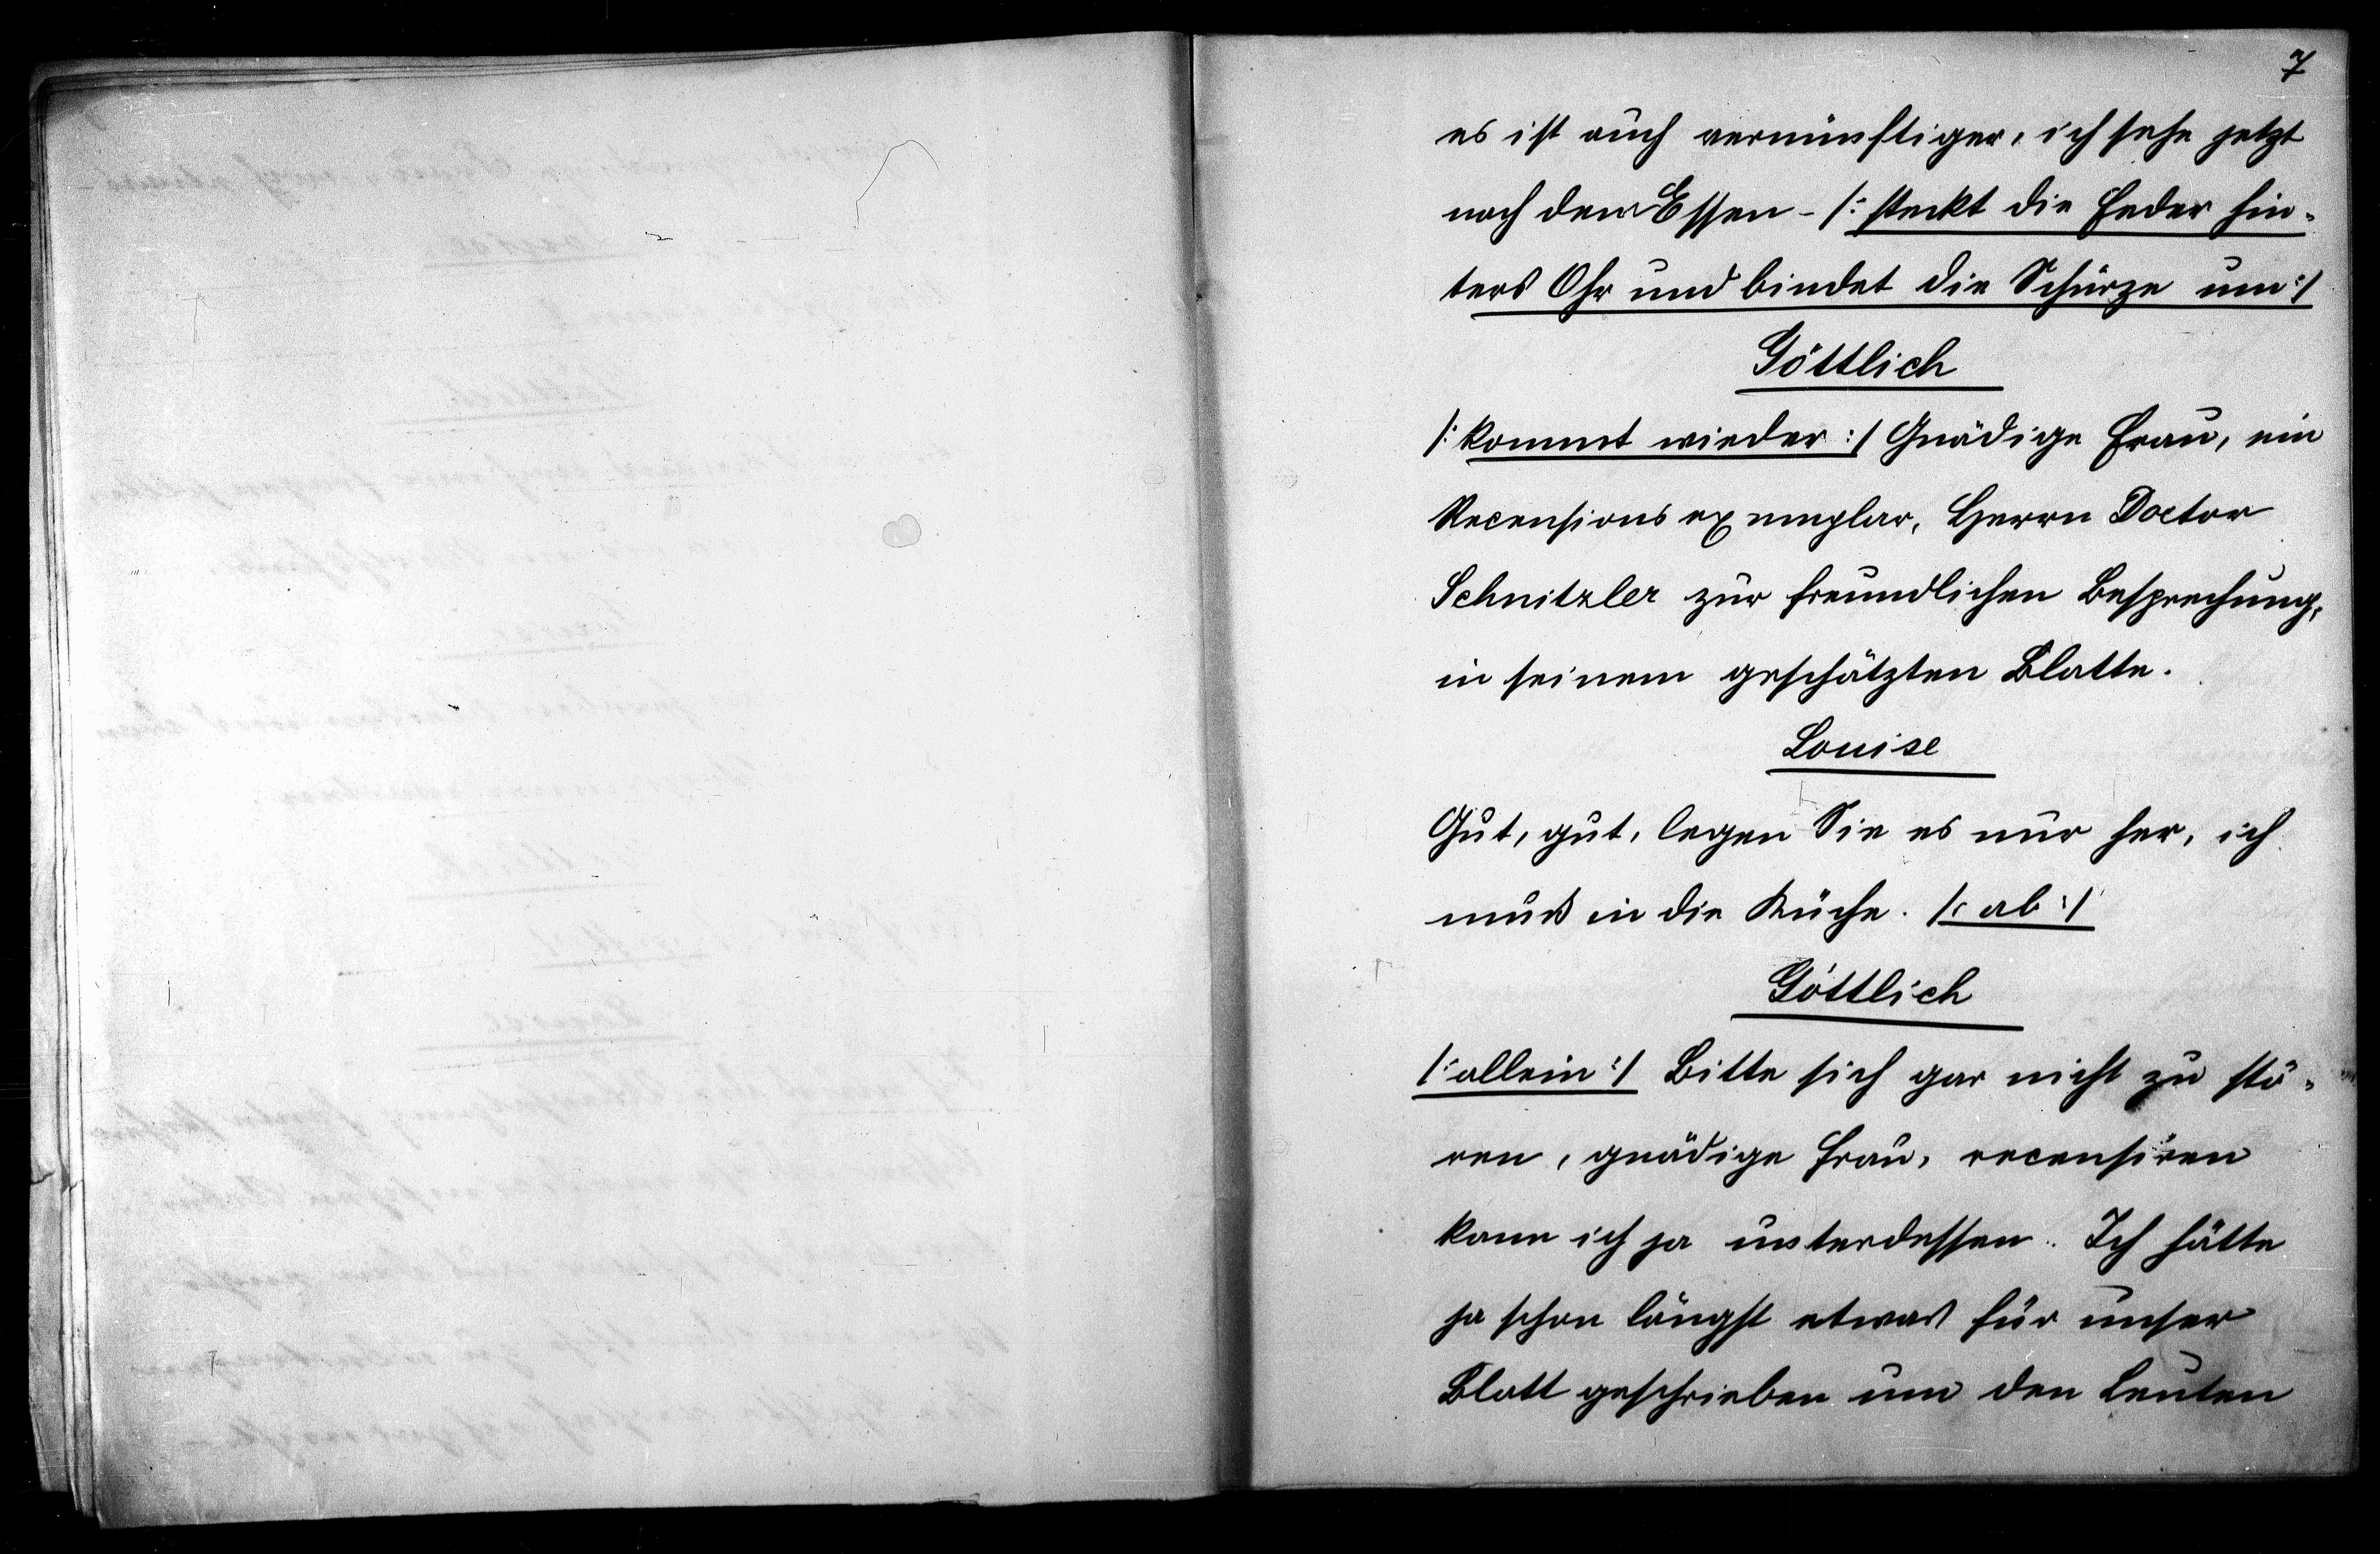 7
es ist auch vernünftiger, ich sehe jetzt
nach dem Essen - /: steckt die Feder hin-
ters Ohr und bindet die Schürze um :/
Göttlich
/: kommt wieder :/ Gnädige Frau, ein
Recensionsexemplar, Herrn Doctor
Schnitzler zur freundlichen Besprechung,
in seinem geschätzten Blatte.
Louise
Gut, gut, legen Sie es nur her, ich
muß in die Küche. /: ab :/
Göttlich
/: allein :/ Bitte sich gar nicht zu stö-
ren, gnädige Frau, recensiren
kann ich ja unterdessen. Ich hätte
ja schon längst etwas für unser
Blatt geschrieben um den Leuten